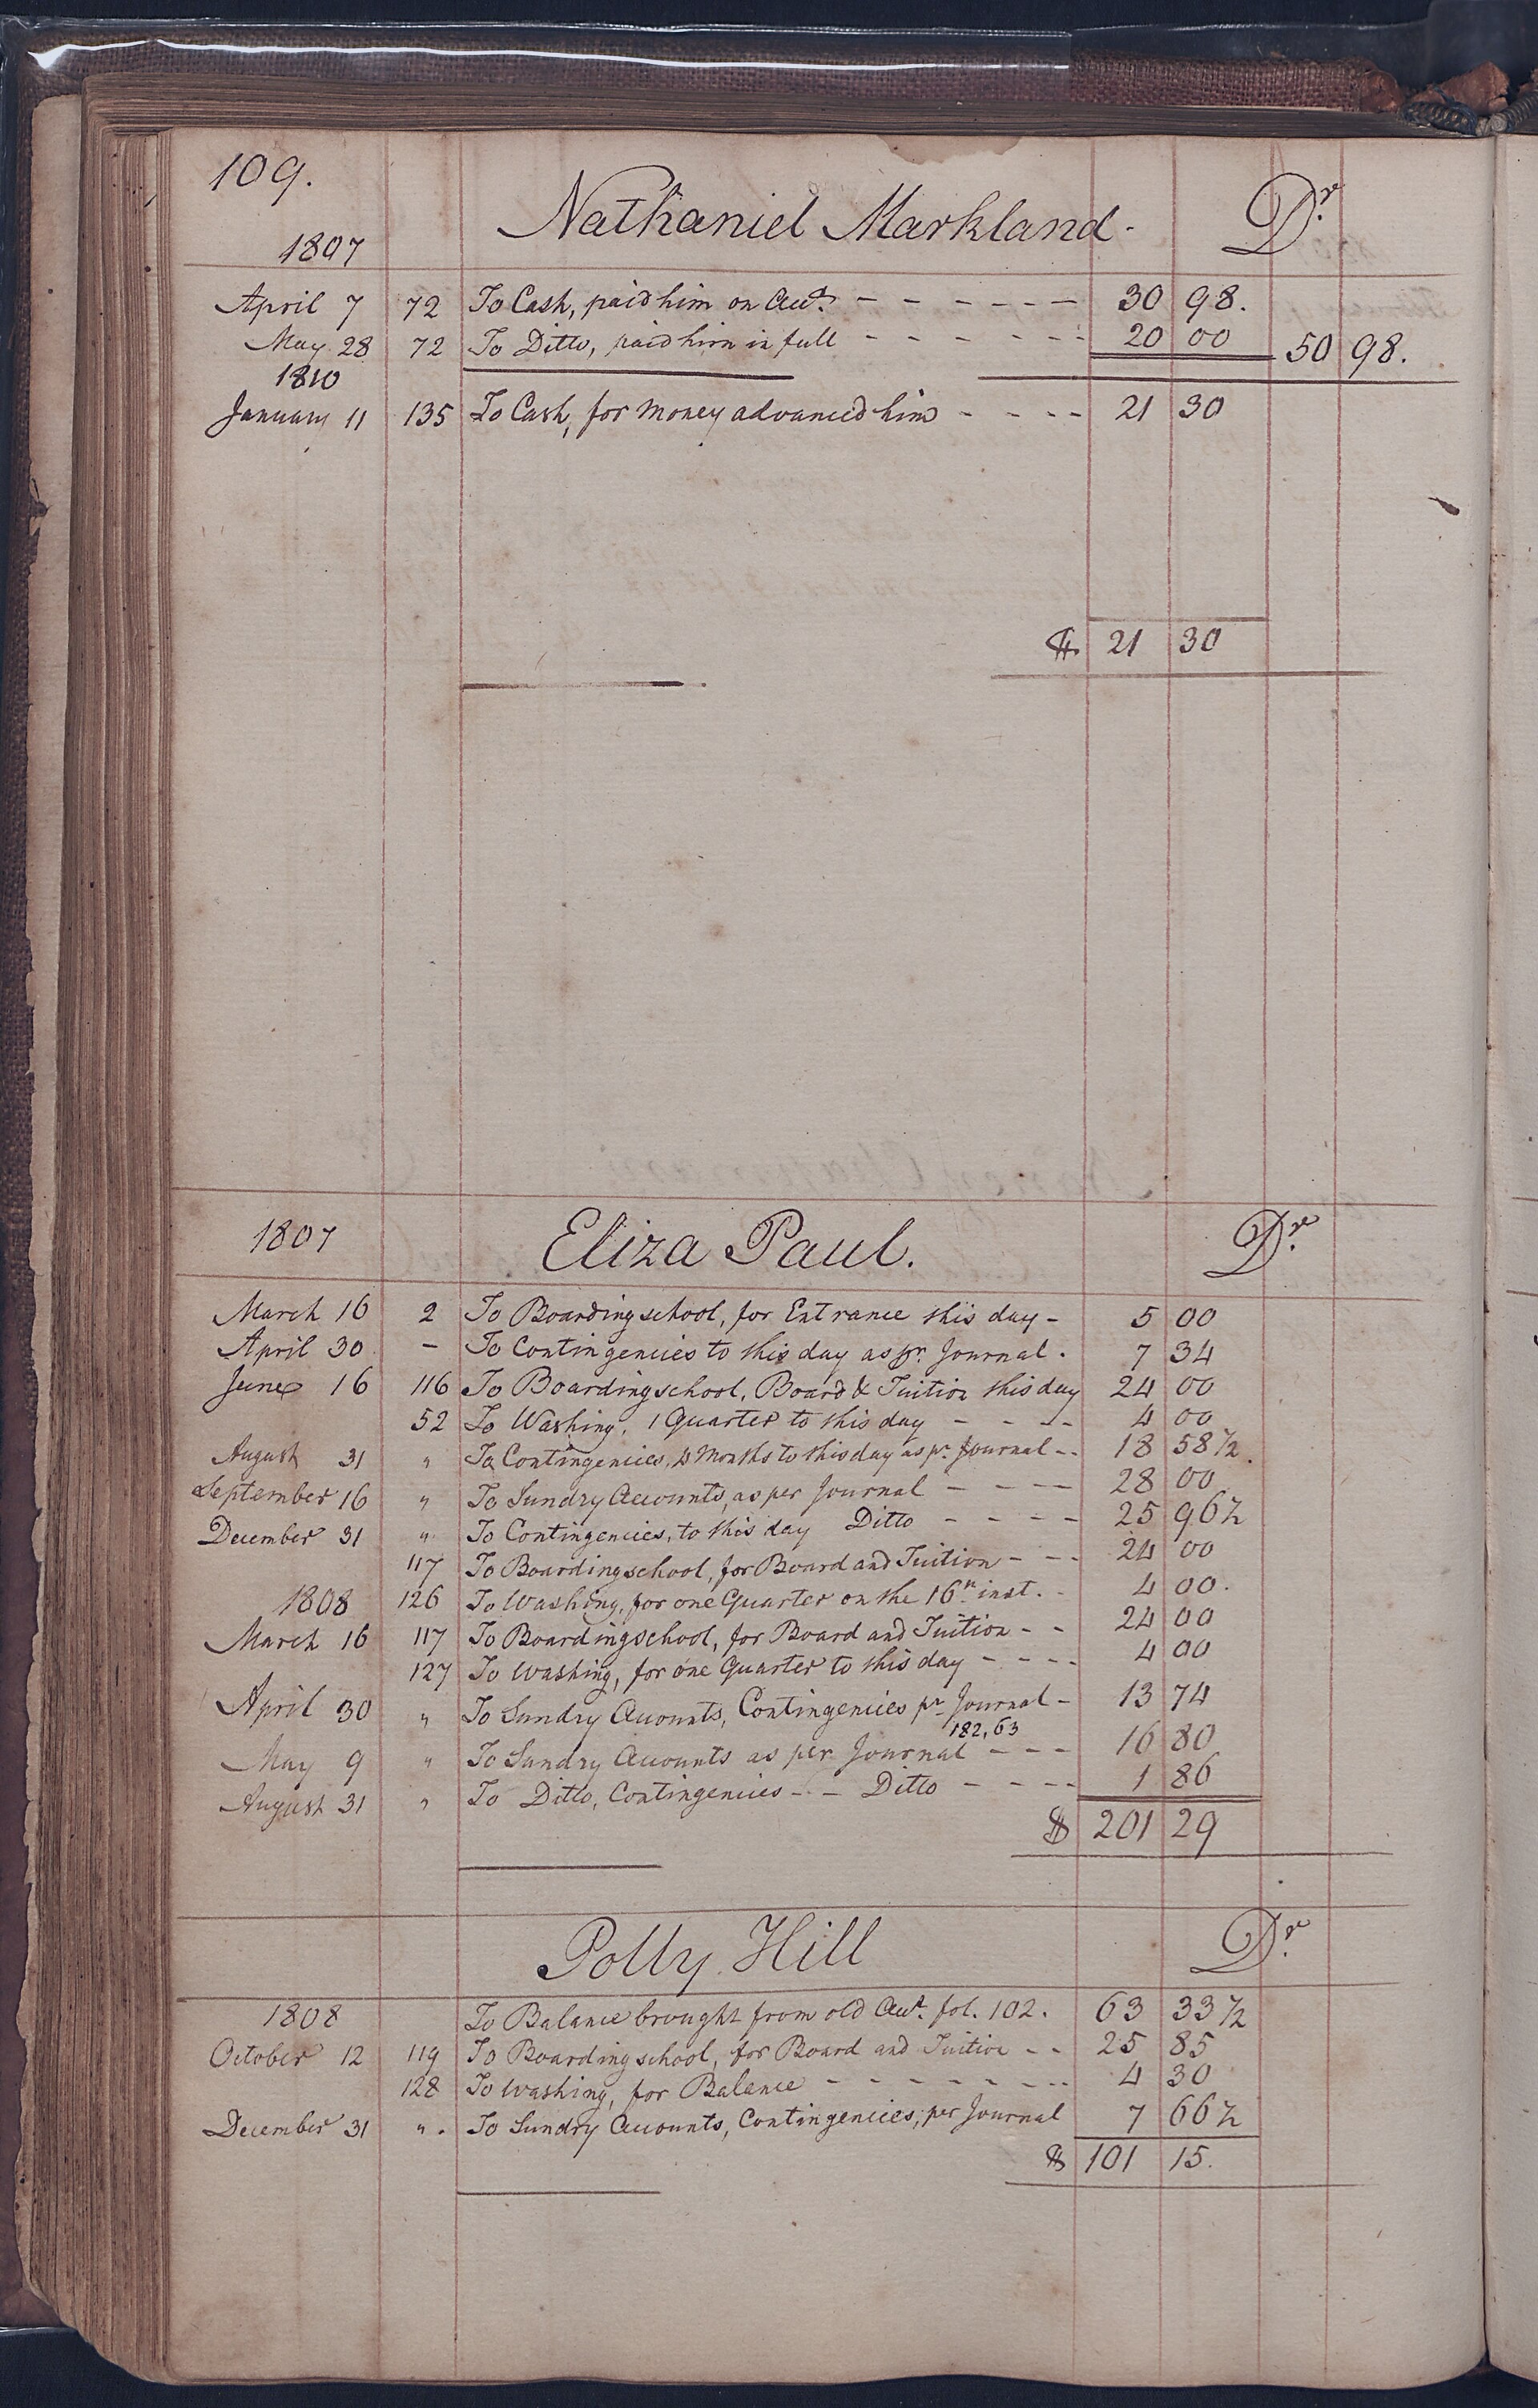 109.
Nathaniel Markland. Dr.
1807
April 7 72 To Cash, paid him on Acct. - - - - - - 30 98.
May 28 72 To Ditto, paid him in full - - - - - - 20 00 50 98.
1810
January 11 135 To Cash, for Money advanced him - - - - 21 30
$ 21 30
1807 Eliza Paul. Dr.
March 16 2 To Boardingschool, for Entrance this day - 5 00
April 30 - To Contingencies to this day as pr. Journal. 7 34
June 16 116 To Boardingschool, Board & Tuition this day 24 00
52 To Washing, 1 Quarter to this day - - - - 4 00
August 31 " To Contingencies, 4 Months to this day as pr. Journal - - 18 58½.
September 16 " To Sundry Accounts, as per Journal - - - - 28 00
December 31 " To Contingencies, to this day Ditto - - - - 25 96½
117 To Boardingschool, for Board and Tuition - - - 24 00
1808 126 To Washing, for one Quarter on the 16th inst. - 4 00.
March 16 117 To Boardingschool, for Board and Tuition - - 24 00
127 To Washing, for one Quarter to this day - - - - 4 00
April 30 " To Sundry Accounts, Contingencies pr. Journal - 13 74
182,63
May 9 " To Sundry Accounts as per Journal - - - 16 80
August 31 " To Ditto, Contingencies - - Ditto - - - - 1 86
$ 201 29
Polly Hill Dr.
1808 To Balance brought from old Acct. fol. 102. 63 33½
October 12 119 To Boardingschool, for Board and Tuition - - 25 85
128 To Washing, for Balance - - - - - - - - 4 30
December 31 " . To Sundry Accounts, Contingencies, per Journal 7 66½
$ 101 15.